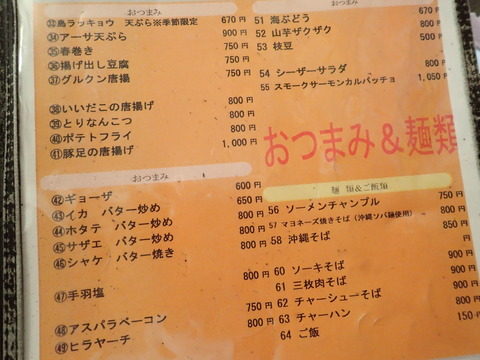 おつまみ
㉝島ラッキョウ 天ぷら※季節限定 670円
㉞アーサ天ぷら 900円
㉟春巻き
㊱揚げ出し豆腐
㊲グルクン唐揚
㊳いいだこの唐揚げ 800円
㊴とりなんこつ 800円
㊵ポテトフライ 800円
㊶豚足の唐揚げ 1,000円
おつまみ
㊷ギョーザ 600円
㊸イカ バター炒め 650円
㊹ホタテ バター炒め 800円
㊺サザエ バター炒め 800円
㊻シャケ バター焼き 800円
㊼手羽塩 800円
㊽アスパラベーコン 750円
㊾ヒラヤーチ 800円
おつまみ
51 海ぶどう
52 山芋ザクザク 670円
53 枝豆 500円
54 シーザーサラダ 800円
55 スモークサーモンカルパッチョ 1,050円
おつまみ＆麺類
麺類＆ご飯類
56 ソーメンチャンプル 750円
57 マヨネーズ焼きそば（沖縄ソバ麺使用）
58 沖縄そば
60 ソーキそば
61 三枚肉そば
62 チャーシューそば
63 チャーハン
64 ご飯 150円